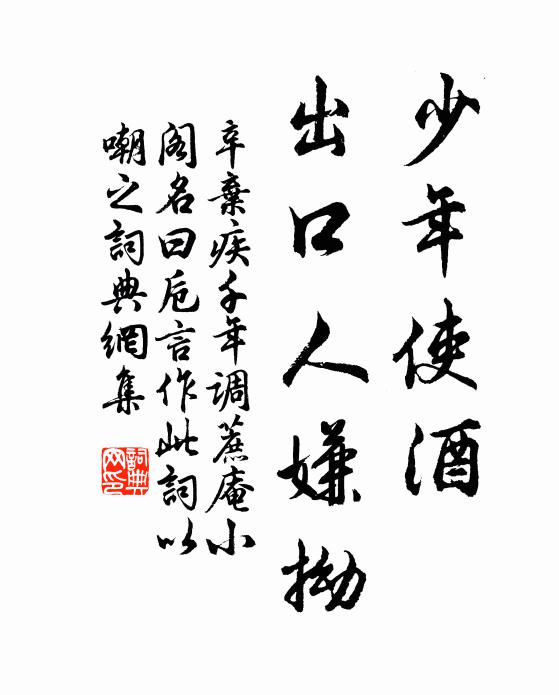 少年使酒
出口人嫌拗
辛棄疾千年調蔗庵小
閣名曰卮言作此詞以
嘲之詞典網集
詞典
网印